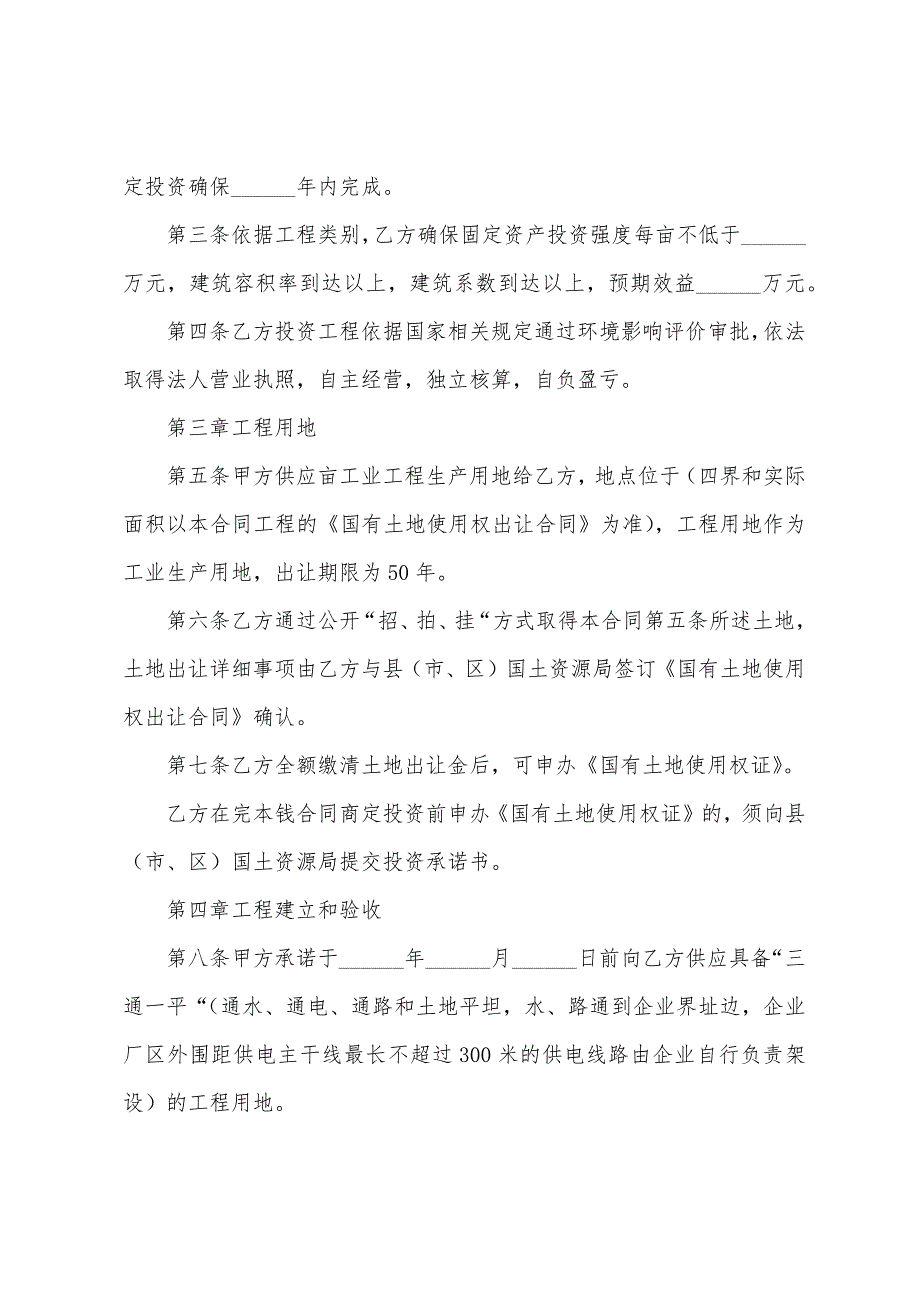 定投资确保______年内完成。
第三条依据工程类别,乙方确保固定资产投资强度每亩不低于______
万元，建筑容积率到达以上，建筑系数到达以上，预期效益______万元。
第四条乙方投资工程依据国家相关规定通过环境影响评价审批,依法
取得法人营业执照，自主经营，独立核算，自负盈亏。
第三章工程用地
第五条甲方供应亩工业工程生产用地给乙方，地点位于（四界和实际
面积以本合同工程的《国有土地使用权出让合同》为准），工程用地作为
工业生产用地，出让期限为 50 年。
第六条乙方通过公开“招、拍、挂“方式取得本合同第五条所述土地，
土地出让详细事项由乙方与县（市、区）国土资源局签订《国有土地使用
权出让合同》确认。
第七条乙方全额缴清土地出让金后，可申办《国有土地使用权证》。
乙方在完本钱合同商定投资前申办《国有土地使用权证》的，须向县
（市、区）国土资源局提交投资承诺书。
第四章工程建立和验收
第八条甲方承诺于______年______月______日前向乙方供应具备“三
通一平“（通水、通电、通路和土地平坦，水、路通到企业界址边，企业
厂区外围距供电主干线最长不超过 300 米的供电线路由企业自行负责架
设）的工程用地。